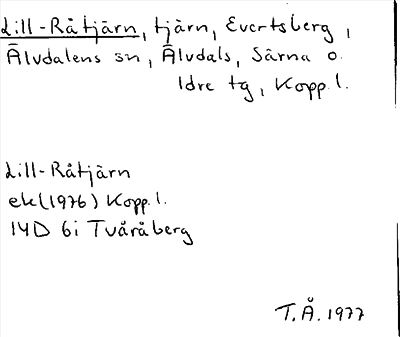 Lill-Råtjärn, tjärn, Evertsberg,
Älvdalens sn, Älvdals, Särna o.
Idre tg, Kopp.l.
Lill-Råtjärn
ek(1976) Kopp.l.
14D 6i Tvåråberg
T.Å. 1977